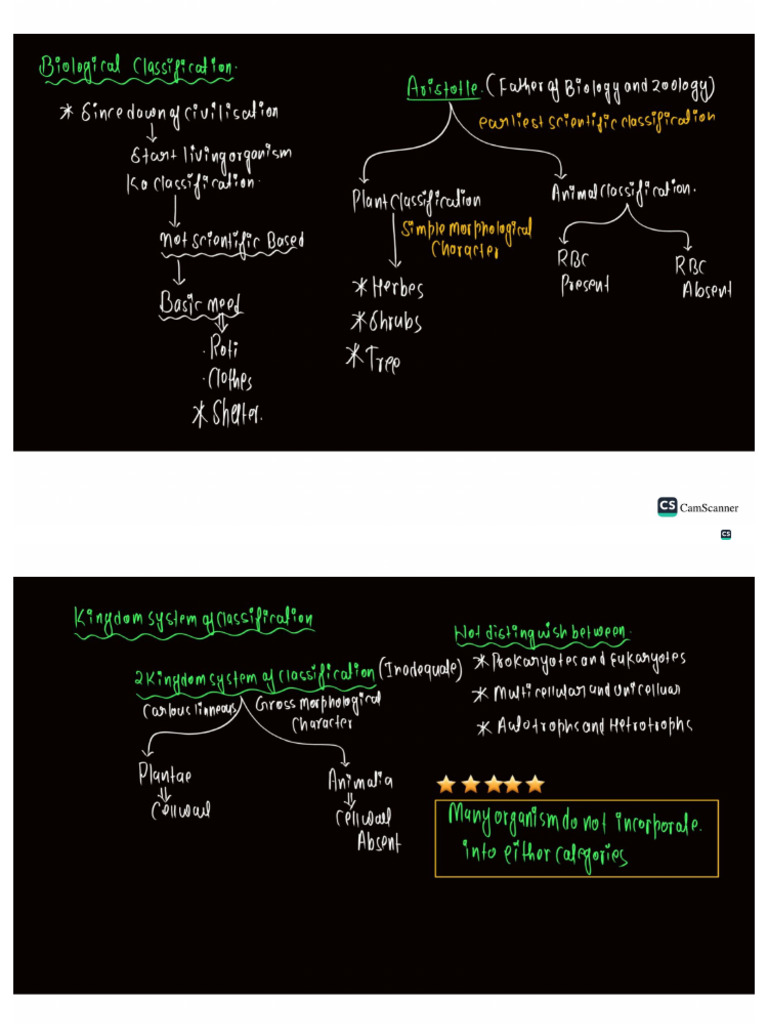 Biological Classification.
* Since dawn of civilisation
Start living organism
Ko classification.
not scientific Based
Basic need
. Roti
. Clothes
* Shelter.
Aristotle. (Father of Biology and Zoology)
earliest scientific classification
Plant Classification
Simple morphological
Character
* Herbes
* Shrubs
* Tree
Animal Classification.
RBC
Present
RBC
Absent
CS CamScanner
CS
Kingdom system of classification
2 Kingdom system of classification (Inadequate)
Carlous linneous
Gross morphological
Character
Plantae
Cellwall
Animalia
Cellwall
Absent
Not distinguish between.
* Prokaryotes and Eukaryotes
* Multicellular and Unicelluar
* Autotrophs and Hetrotrophs
Many organism do not incorporate.
into either categories